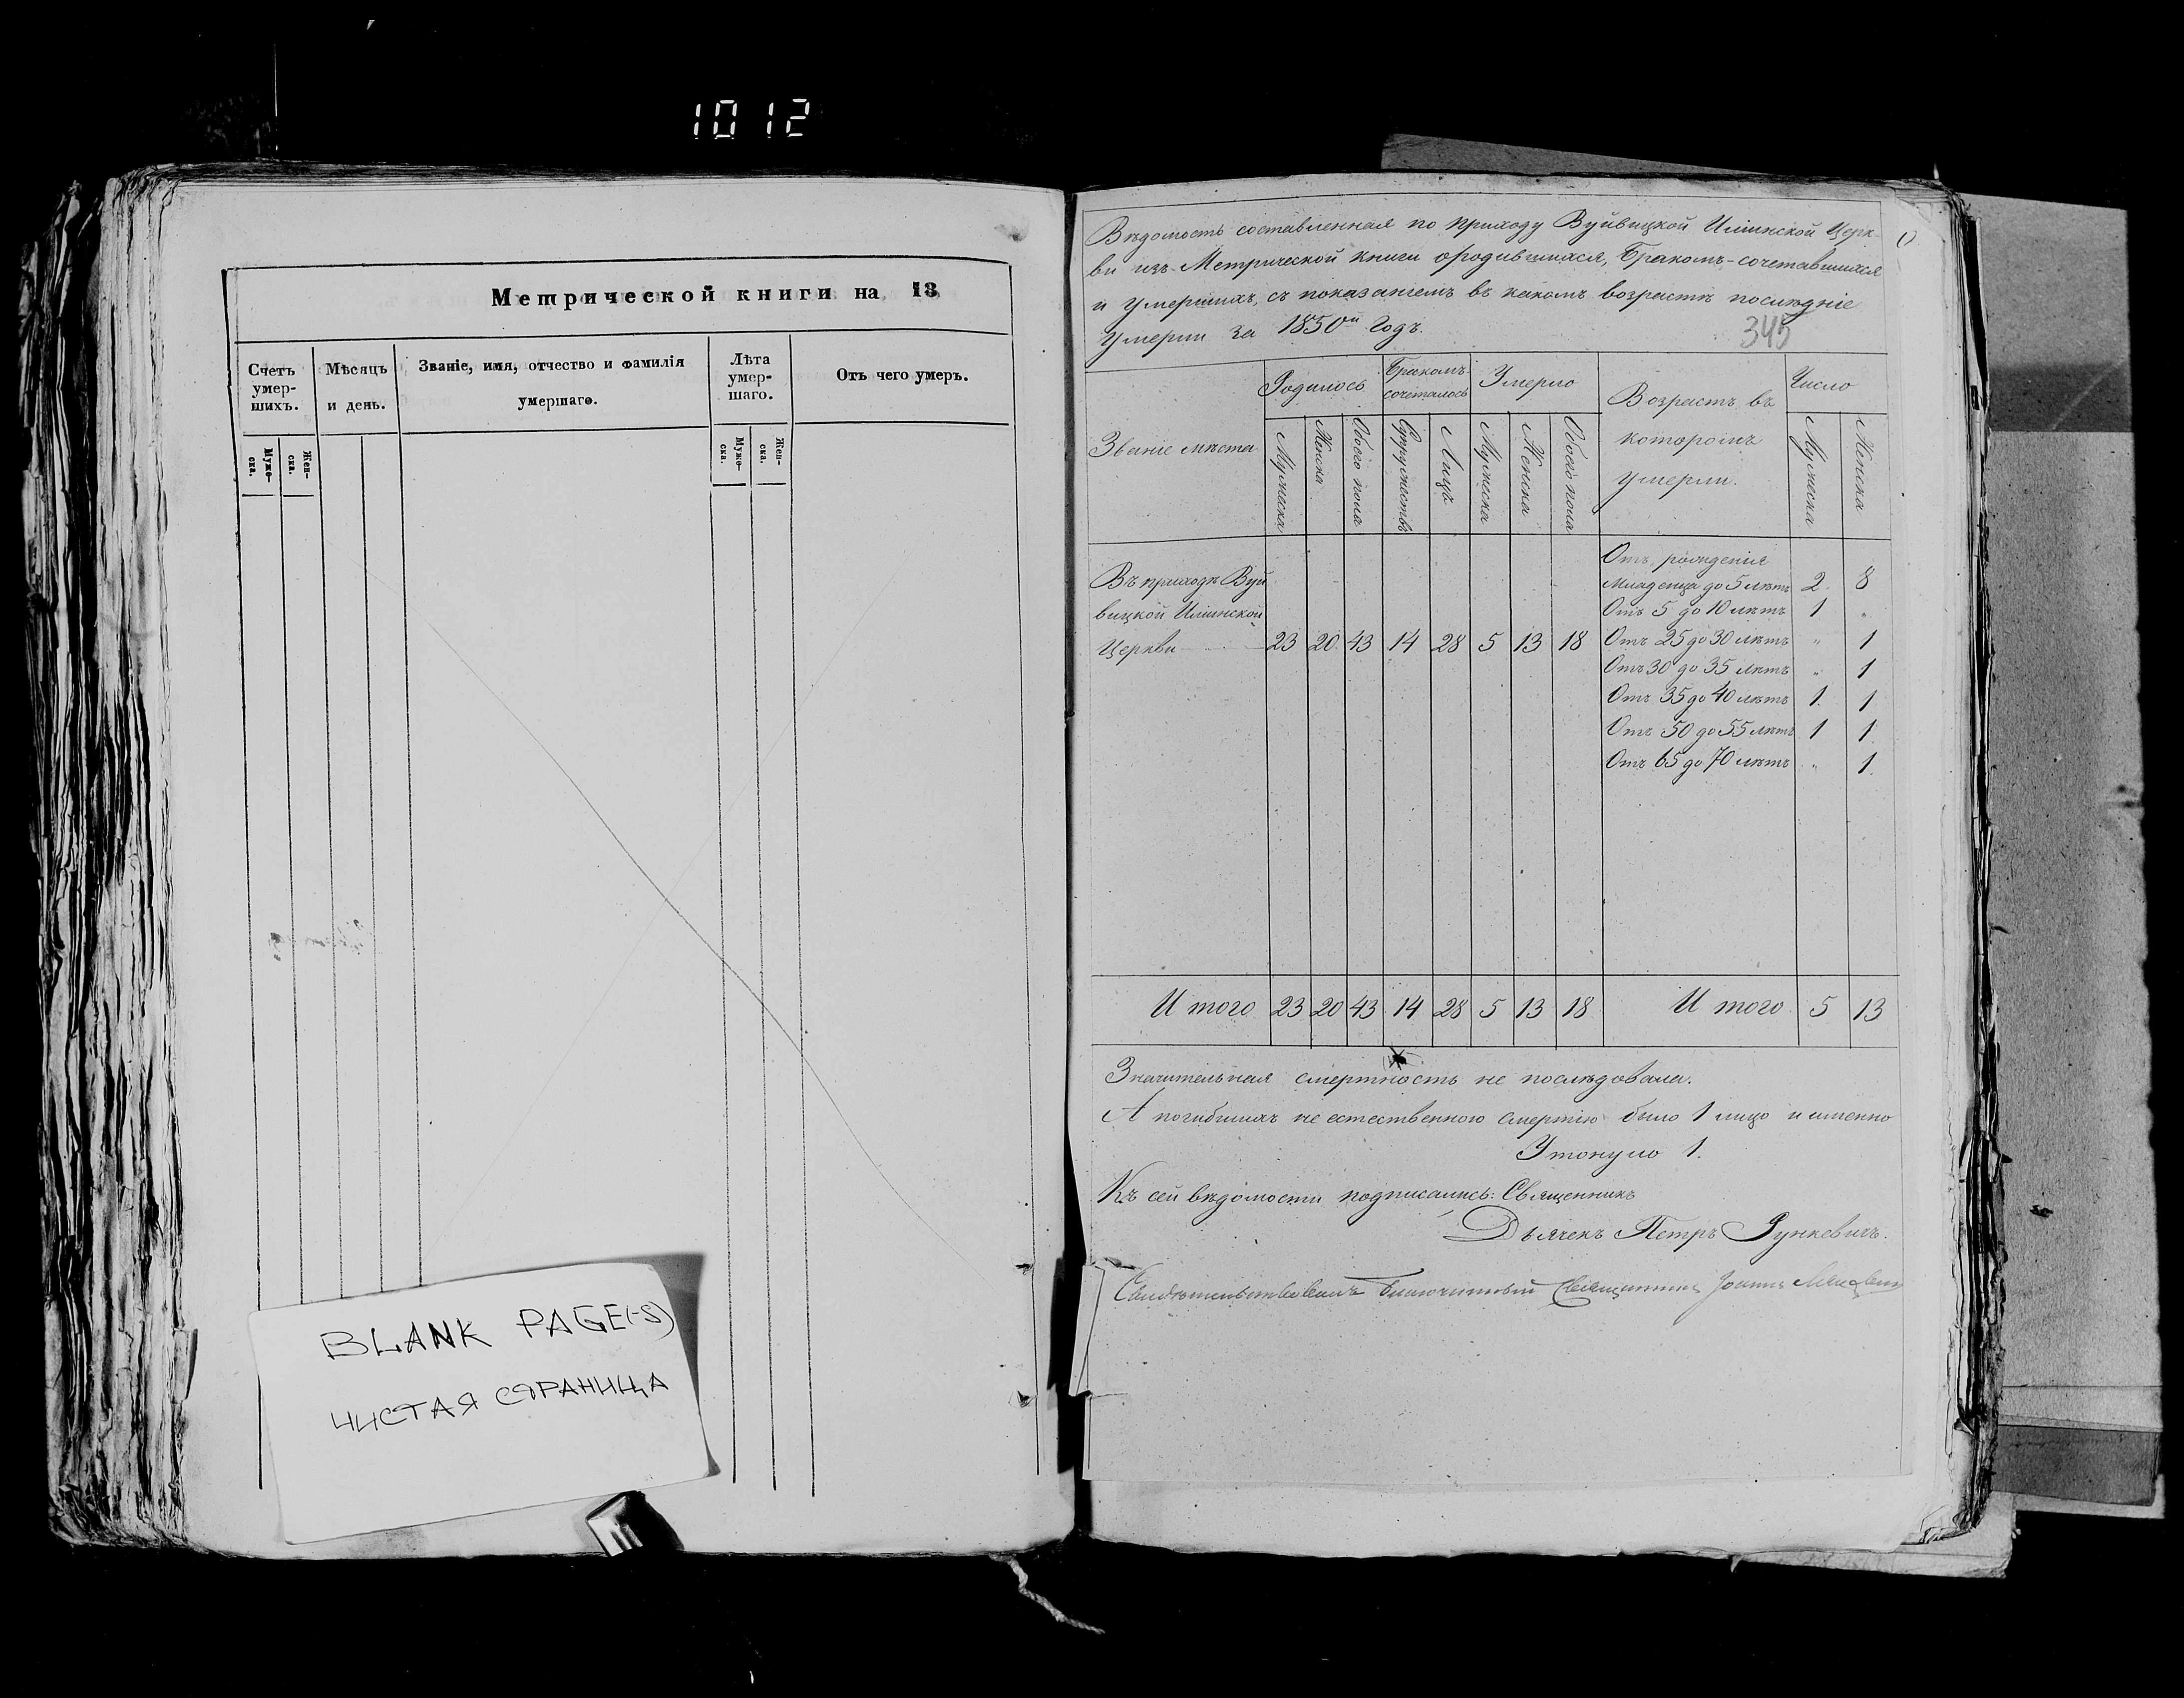 1012
Метрической книги на 18
Счетъ умер-шихъ.
Мѣсяцъ и день.
Званіе, имя, отчество и фамилія умершаго.
Лѣта умер-шаго.
Отъ чего умеръ.
Муже-ска.
Жен-ска.
Муже-ска.
Жен-ска.
BLANK PAGE(-S)
ЧИСТАЯ СТРАНИЦА
Вѣдомость составленная по приходу Вуйвицкой Ильинской Церк-
ви изъ Метрической книги ородившихся, Бракомъ-сочетавшихся
и Умершихъ, съ показаніемъ въ какомъ возрастѣ послѣдніе
Умерли за 1850й Годъ.
345
Званіе мѣста
Родилось
Бракомъ-сочеталось
Умерло
Возрастъ въ
которомъ
Умерли.
Число
Мужеска
Женска
Обоего пола
Супружествъ
Лицъ
Мужеска
Женска
Обоего пола
Мужеска
Женска
Отъ рожденія
Въ приходѣ Вуй Младенца до 5 лѣтъ 2 8
вицкой Ильинской Отъ 5 до 10 лѣтъ 1 "
Церкви 23 20 43 14 28 5 13 18 Отъ 25 до 30 лѣтъ " 1
Отъ 30 до 35 лѣтъ " 1
Отъ 35 до 40 лѣтъ 1 1
Отъ 50 до 55 лѣтъ 1 1
Отъ 65 до 70 лѣтъ " 1
И того 23 20 43 14 28 5 13 18 И того 5 13
Значительная смертность не послѣдовала.
А погибшихъ не естественною смертію было 1 лицо и именно
Утонуло 1.
Къ сей вѣдомости подписались: Священникъ
Дьячекъ Петръ Рункевичъ.
Свидѣтельствовалъ Благочинный Священникъ Іоаннъ